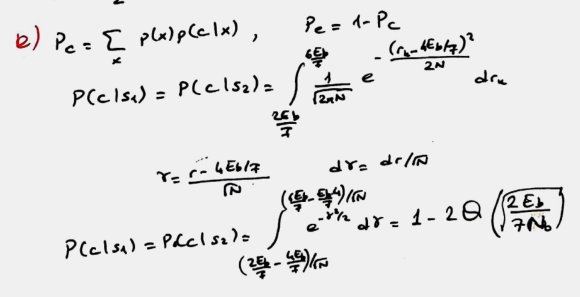 e) Pc = Σ p(x)p(c|x) , Pe = 1 - Pc
x
P(c|s1) = P(c|s2) = ∫_{2Eb/7}^{6Eb/7} 1/√(2πN) e^{-(rk-4Eb/7)²/2N} drk
γ = (r-4Eb/7)/√N dγ = dr/√N
P(c|s1) = P(c|s2) = ∫_{(2Eb/7 - 4Eb/7)/√N}^{(6Eb/7 - Eb4/7)/√N} e^{-γ²/2} dγ = 1 - 2Q(√(2Eb/7N0))